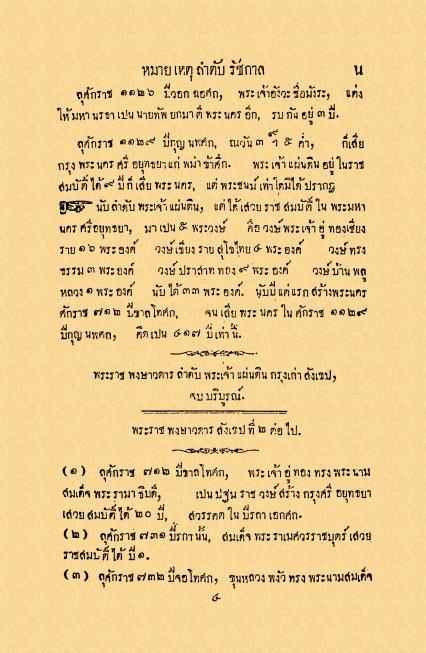 หมาย เหตุ ลำดับ รัชกาล น
ลุศักราช ๑๑๒๖ ปีวอก ฉอศก, พระเจ้าอังวะ ชื่อมังระ, แต่ง
ให้ มหา นรธา เปน นายทัพ ยกมา ตี พระ นคร อีก, รบ กัน อยู่ ๓ ปี.
ลุศักราช ๑๑๒๙ ปีกุญ นพศก, ณวัน ๓ ๙ฯ ๕ ค่ำ, ก็เสีย
กรุง พระ นคร ศรี อยุทธยา แก่ พม่า ข้าศึก. พระ เจ้า แผ่นดิน อยู่ ในราช
สมบัติ ได้ ๙ ปี ก็ เสีย พระ นคร, แต่ พระชนม์ เท่าใดมิได้ ปรากฏ
นับ ลำดับ พระเจ้า แผ่นดิน, แต่ ได้ เสวย ราช สมบัติ ใน พระมหา
นคร ศรีอยุทธยา, มา เปน ๕ พระวงษ์ คือ วงษ์ พระเจ้า อู่ ทองเชียง
ราย ๑๖ พระ องค์ วงษ์ เชียง ราย สุโขไทย ๔ พระ องค์ วงษ์ ทรง
ธรรม ๓ พระ องค์ วงษ์ ปราสาท ทอง ๙ พระ องค์ วงษ์ บ้าน พลู
หลวง ๑ พระ องค์ นับ ได้ ๓๓ พระ องค์. นับปี แต่ แรก สร้างพระนคร
ศักราช ๗๑๒ ปีขาลโทศก, จน เสีย พระ นคร ใน ศักราช ๑๑๒๙
ปีกุญ นพศก, คิด เปน ๔๑๗ ปี เท่า นี้.
พระราช พงษาวดาร ลำดับ พระเจ้า แผ่นดิน กรุงเก่า สังเขป,
จบ บริบูรณ์.
พระราช พงษาวดาร สังเขป ที่ ๒ ต่อ ไป.
(๑) ลุศักราช ๗๑๒ ปีขาลโทศก, พระเจ้า อู่ ทอง ทรง พระ นาม
สมเด็จ พระ รามา ธิบดี, เปน ปฐม ราช วงษ์ สร้าง กรุงศรี อยุทธยา
เสวย สมบัติ ได้ ๒๐ ปี, สวรรคต ใน ปีรกา เอกศก.
(๒) ลุศักราช ๗๓๑ ปีรกา นั้น, สมเด็จ พระ ราเมศวรราชบุตร์ เสวย
ราชสมบัติ ได้ ปี ๑.
(๓) ลุศักราช ๗๓๒ ปีจอโทศก, ขุนหลวง พงัว ทรง พระนามสมเด็จ
๔